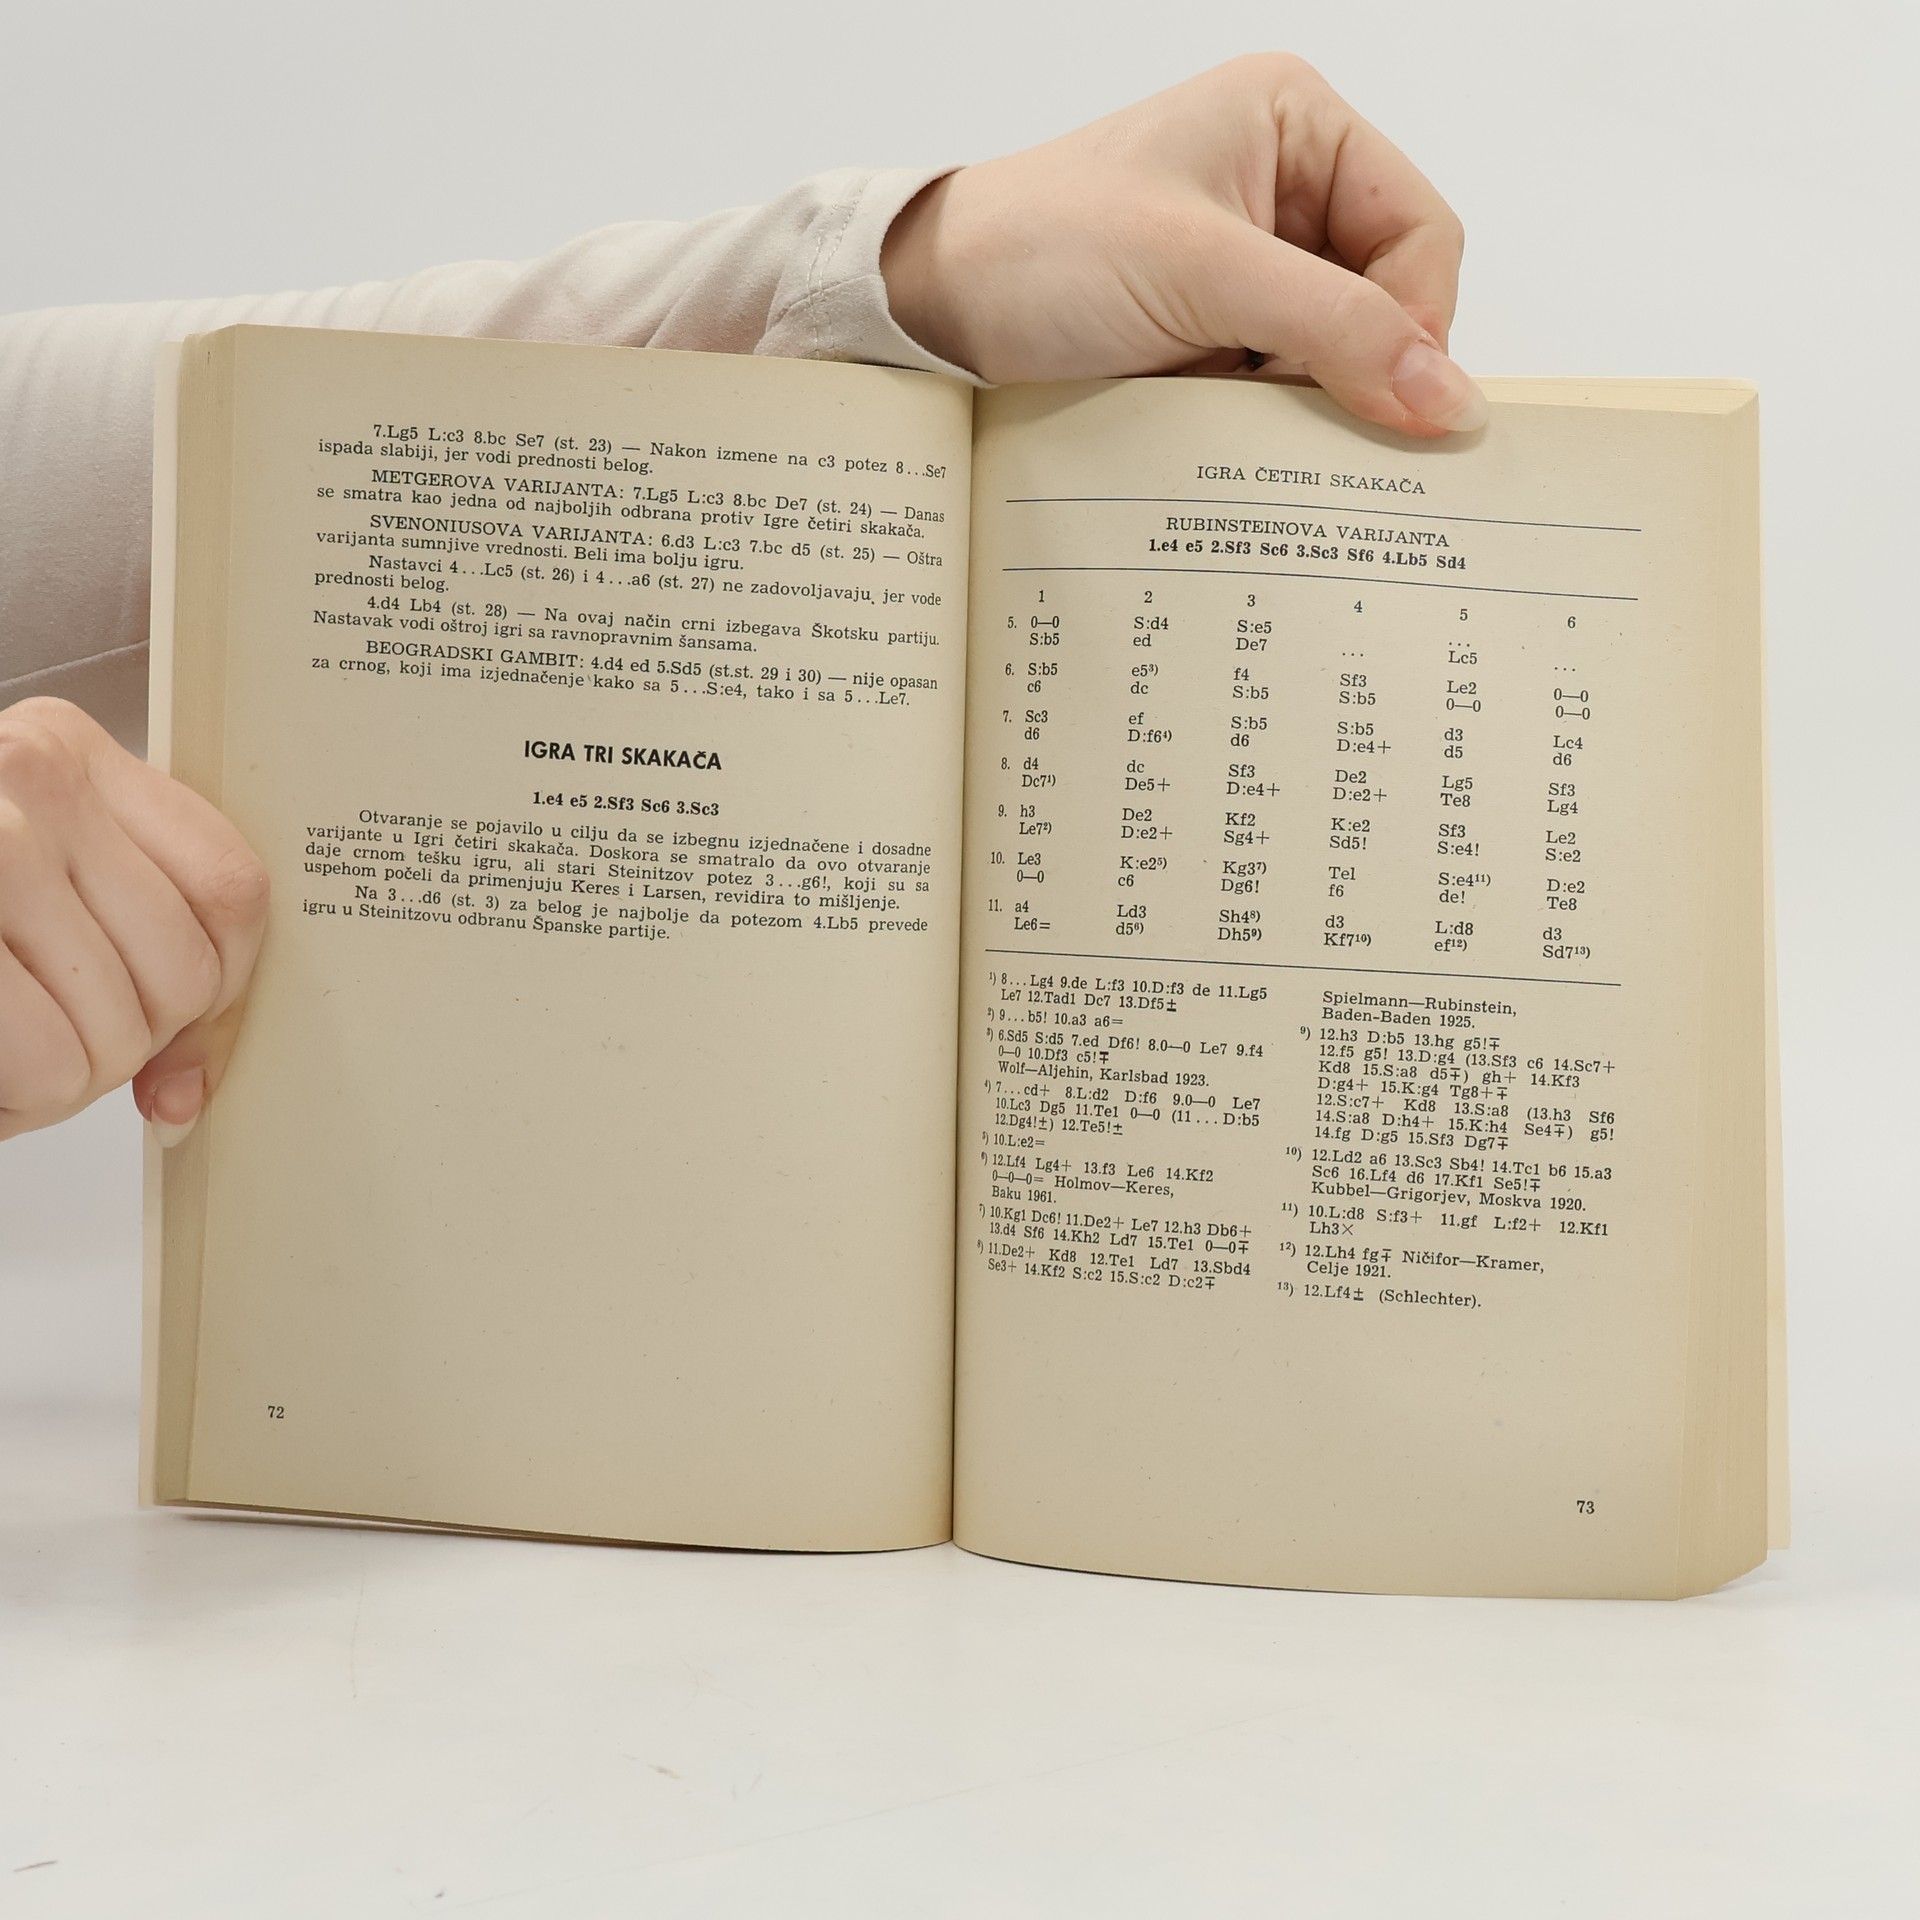 7.Lg5 L:c3 8.bc Se7 (st. 23) — Nakon izmene na c3 potez 8...Se7
ispada slabiji, jer vodi prednosti belog.
METGEROVA VARIJANTA: 7.Lg5 L:c3 8.bc De7 (st. 24) — Danas
se smatra kao jedna od najboljih odbrana protiv Igre četiri skakača.
SVENONIUSOVA VARIJANTA: 6.d3 L:c3 7.bc d5 (st. 25) — Oštra
varijanta sumnjive vrednosti. Beli ima bolju igru.
Nastavci 4...Lc5 (st. 26) i 4...a6 (st. 27) ne zadovoljavaju, jer vode
prednosti belog.
4.d4 Lb4 (st. 28) — Na ovaj način crni izbegava Škotsku partiju.
Nastavak vodi oštroj igri sa ravnopravnim šansama.
BEOGRADSKI GAMBIT: 4.d4 ed 5.Sd5 (st.st. 29 i 30) — nije opasan
za crnog, koji ima izjednačenje kako sa 5...S:e4, tako i sa 5...Le7.
IGRA TRI SKAKAČA
1.e4 e5 2.Sf3 Sc6 3.Sc3
Otvaranje se pojavilo u cilju da se izbegnu izjednačene i dosadne
varijante u Igri četiri skakača. Doskora se smatralo da ovo otvaranje
daje crnom tešku igru, ali stari Steinitzov potez 3...g6!, koji su sa
uspehom počeli da primenjuju Keres i Larsen, revidira to mišljenje.
Na 3...d6 (st. 3) za belog je najbolje da potezom 4.Lb5 prevede
igru u Steinitzovu odbranu Španske partije.
72
IGRA ČETIRI SKAKAČA
RUBINSTEINOVA VARIJANTA
1.e4 e5 2.Sf3 Sc6 3.Sc3 Sf6 4.Lb5 Sd4
1 2 3 4 5 6
5. 0—0 S:d4 S:e5 ... ... ...
S:b5 ed De7 Lc5
6. S:b5 e5³) f4 Sf3 Le2 0—0
c6 dc S:b5 S:b5 0—0 0—0
7. Sc3 ef S:b5 S:b5 d3 Lc4
d6 D:f6⁴) d6 D:e4+ d5 d6
8. d4 dc Sf3 De2 Lg5 Sf3
Dc7¹) De5+ D:e4+ D:e2+ Te8 Lg4
9. h3 De2 Kf2 K:e2 Sf3 Le2
Le7²) D:e2+ Sg4+ Sd5! S:e4! S:e2
10. Le3 K:e2⁵) Kg3⁷) Te1 S:e4¹¹) D:e2
0—0 c6 Dg6! f6 de! Te8
11. a4 Ld3 Sh4⁸) d3 L:d8 d3
Le6= d5⁶) Dh5⁹) Kf7¹⁰) ef¹²) Sd7¹³)
¹) 8...Lg4 9.de L:f3 10.D:f3 de 11.Lg5
Le7 12.Tad1 Dc7 13.Df5±
²) 9...b5! 10.a3 a6=
³) 6.Sd5 S:d5 7.ed Df6! 8.0—0 Le7 9.f4
0—0 10.Df3 c5!∓
Wolf—Aljehin, Karlsbad 1923.
⁴) 7...cd+ 8.L:d2 D:f6 9.0—0 Le7
10.Lc3 Dg5 11.Te1 0—0 (11...D:b5
12.Dg4!±) 12.Te5!±
⁵) 10.L:e2=
⁶) 12.Lf4 Lg4+ 13.f3 Le6 14.Kf2
0—0—0= Holmov—Keres,
Baku 1961.
⁷) 10.Kg1 Dc6! 11.De2+ Le7 12.h3 Db6+
13.d4 Sf6 14.Kh2 Ld7 15.Te1 0—0∓
⁸) 11.De2+ Kd8 12.Te1 Ld7 13.Sbd4
Se3+ 14.Kf2 S:c2 15.S:c2 D:c2∓
Spielmann—Rubinstein,
Baden-Baden 1925.
⁹) 12.h3 D:b5 13.hg g5!∓
12.f5 g5! 13.D:g4 (13.Sf3 c6 14.Sc7+
Kd8 15.S:a8 d5∓) gh+ 14.Kf3
D:g4+ 15.K:g4 Tg8+∓
12.S:c7+ Kd8 13.S:a8 (13.h3 Sf6
14.S:a8 D:h4+ 15.K:h4 Se4∓) g5!
14.fg D:g5 15.Sf3 Dg7∓
¹⁰) 12.Ld2 a6 13.Sc3 Sb4! 14.Tc1 b6 15.a3
Sc6 16.Lf4 d6 17.Kf1 Se5!∓
Kubbel—Grigorjev, Moskva 1920.
¹¹) 10.L:d8 S:f3+ 11.gf L:f2+ 12.Kf1
Lh3×
¹²) 12.Lh4 fg∓ Ničifor—Kramer,
Celje 1921.
¹³) 12.Lf4± (Schlechter).
73